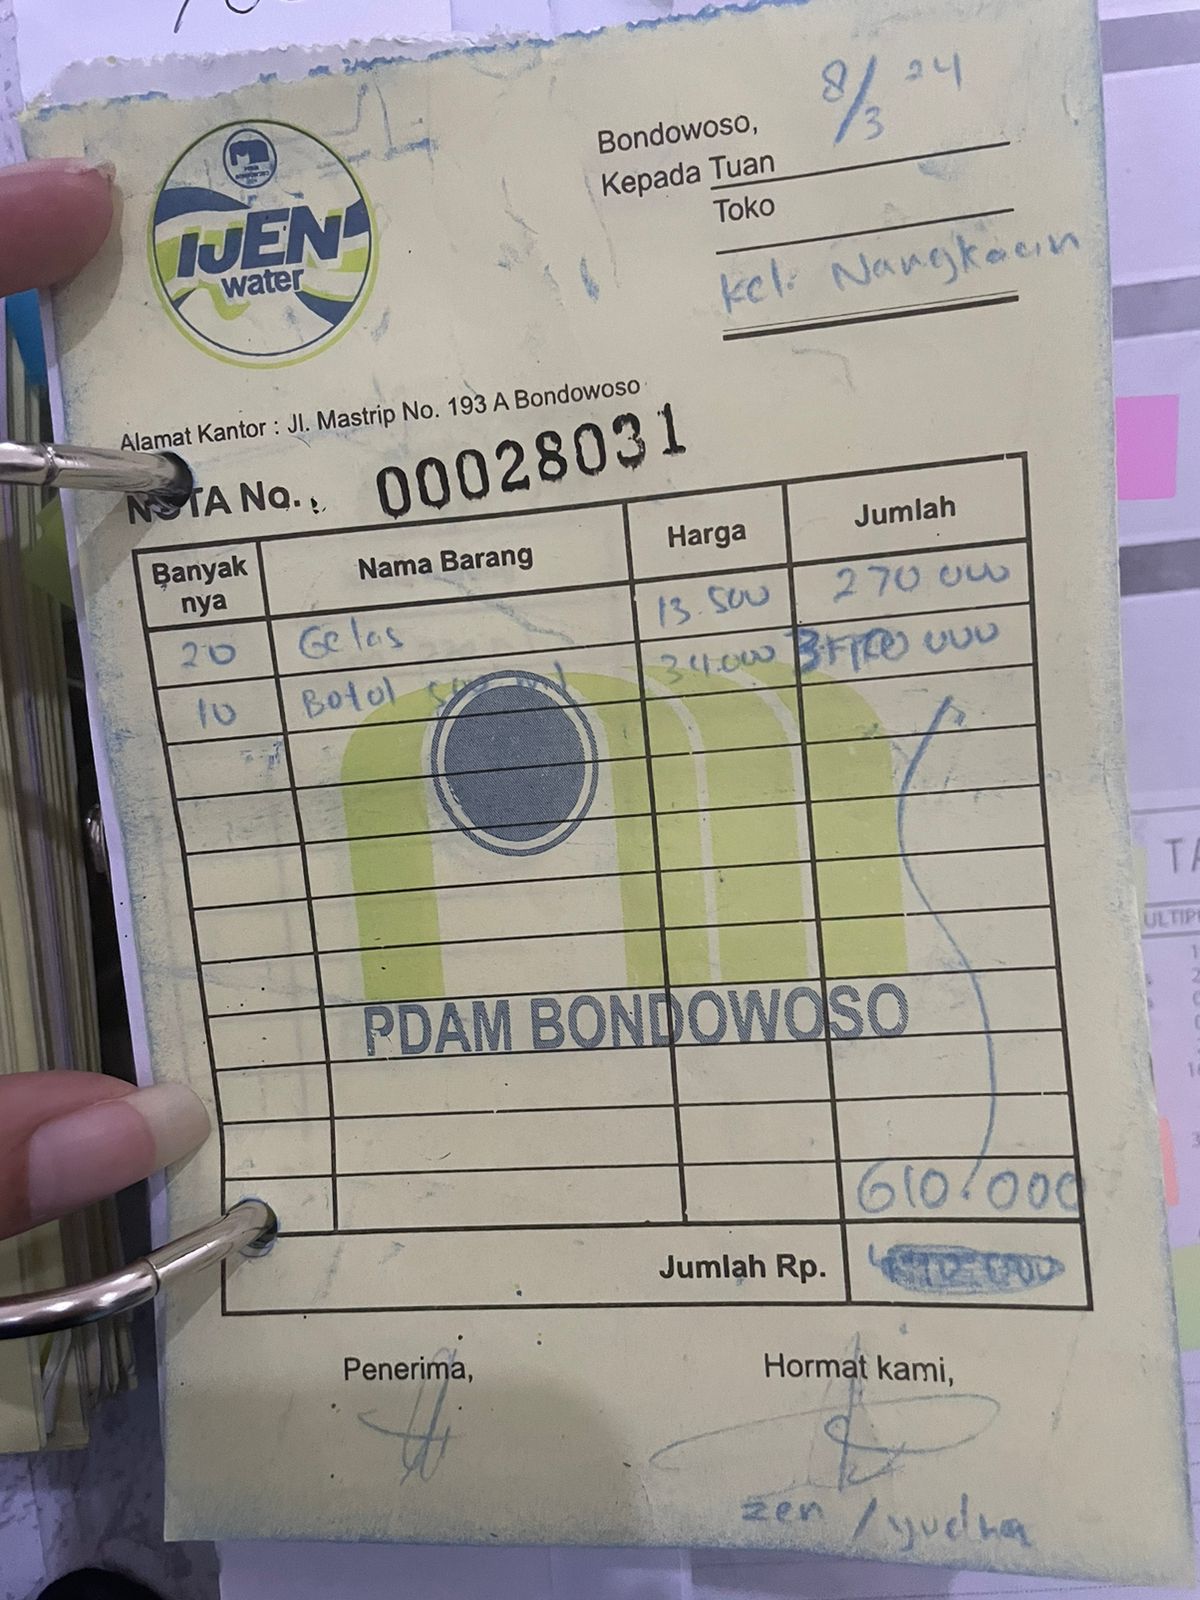 IJEN
water
Bondowoso, 8/3 24
Kepada Tuan
Toko
Kel. Nangkaan
Alamat Kantor : Jl. Mastrip No. 193 A Bondowoso
NOTA No. : 00028031
Banyak nya Nama Barang Harga Jumlah
20 Gelas 13.500 270 000
10 Botol 500 ml 34.000 000
PDAM BONDOWOSO
610.000
Jumlah Rp.
Penerima, Hormat kami,
zen / yudha